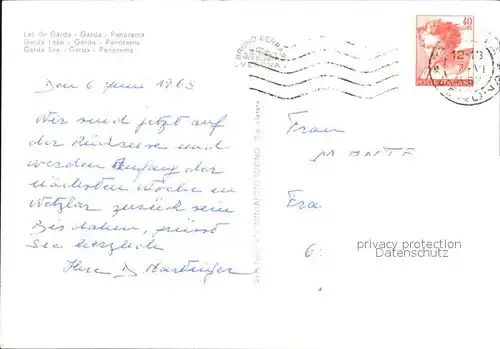 Lac de Garda - Garda - Panorama
Garda Lake - Garda - Panorama
Garda See - Garda - Panorama
Den 6 Juni 1963
Wir sind jetzt auf
der Rückreise und
werden Anfang der
nächsten Woche in
Wetzlar zurück sein
Bis dahin, grüsst
Sie herzlich
Ihre D Hartinger
OMNIAFOTO TORINO
BRUNO FERRARI
VERONA
40
LIRE
12-13
7-VI
Frau
Fra
6:
privacy protection
Datenschutz